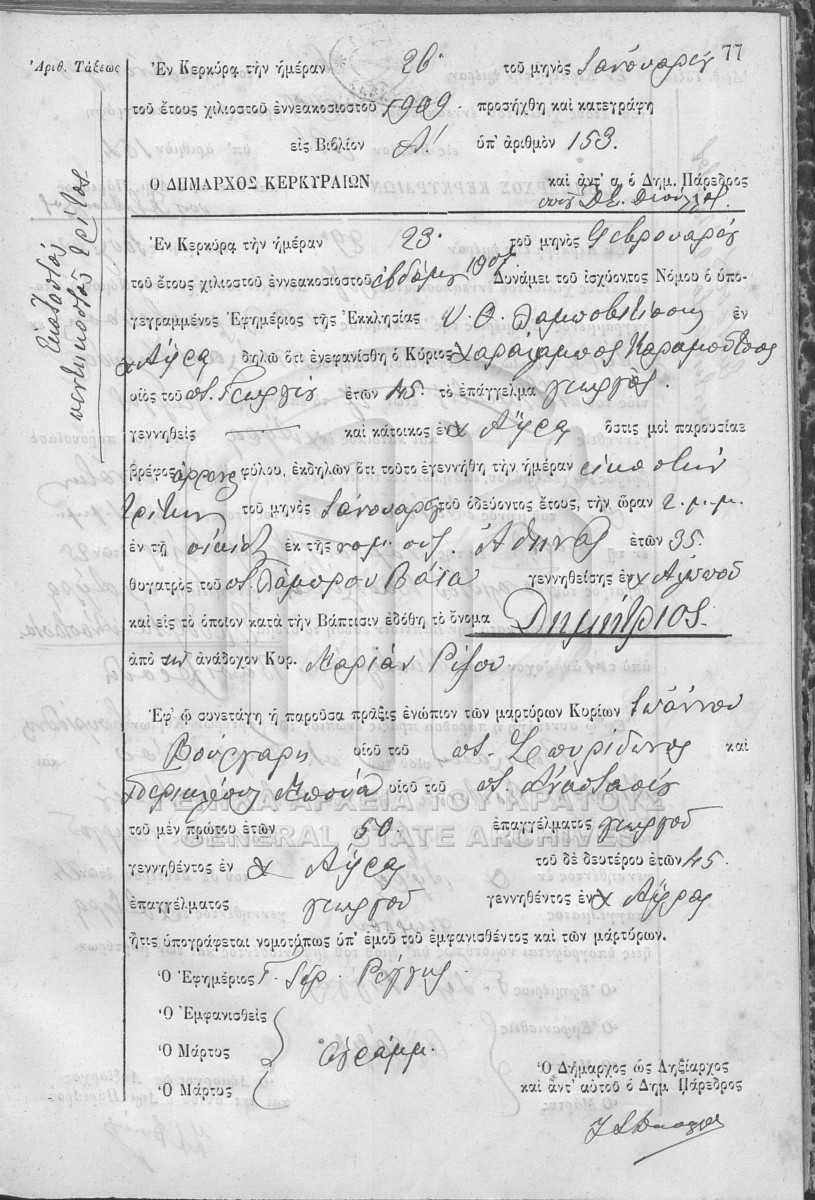 77
Ἀριθ. Τάξεως
Ἐν Κερκύρᾳ τὴν ἡμέραν 26 τοῦ μηνὸς Ἰανουαρίου
τοῦ ἔτους χιλιοστοῦ ἐννεακοσιοστοῦ 1909 προσήχθη καὶ κατεγράφη
εἰς Βιβλίον Α! ὑπ' ἀριθμὸν 153.
Ο ΔΗΜΑΡΧΟΣ ΚΕΡΚΥΡΑΙΩΝ καὶ ἀντ' α, ὁ Δημ. Πάρεδρος
Ἑκατοστοῦ
πεντηκοστοῦ τρίτος
Ἐν Κερκύρᾳ τὴν ἡμέραν 23 τοῦ μηνὸς Φεβρουαρίου
τοῦ ἔτους χιλιοστοῦ ἐννεακοσιοστοῦ ἑβδόμου 1907 Δυνάμει τοῦ ἰσχύοντος Νόμου ὁ ὑπο-
γεγραμμένος Ἐφημέριος τῆς Ἐκκλησίας Υ. Θ. Λαμποβιτίσσης ἐν
χ Ἁύρᾳ δηλῶ ὅτι ἐνεφανίσθη ὁ Κύριος Χαράλαμπος Καραμούτσος
υἱὸς τοῦ ποτ. Γεωργίου ἐτῶν 45. τὸ ἐπάγγελμα γεωργὸς.
γεννηθεὶς καὶ κάτοικος ἐν χ Ἁύρᾳ ὅστις μοὶ παρουσίασε
βρέφος ἄρρενος φύλου, ἐκδηλῶν ὅτι τοῦτο ἐγεννήθη τὴν ἡμέραν εἰκοστὴν
τρίτην τοῦ μηνὸς Ἰανουαρίου τοῦ ὁδεύοντος ἔτους, τὴν ὥραν 2. μ.μ.
ἐν τῇ οἰκίᾳ ἐκ τῆς νομ. συζ. Ἀθηνᾶς ἐτῶν 35.
θυγατρὸς τοῦ ποτ. Λάμπρου Βάϊα γεννηθείσης ἐν χ
καὶ εἰς τὸ ὁποῖον κατὰ τὴν Βάπτισιν ἐδόθη τὸ ὄνομα Δημήτριος.
ἀπὸ τὴν ἀνάδοχον Κυρ. Μαρίαν Ρίζου
Ἐφ' ᾧ συνετάγη ἡ παροῦσα πρᾶξις ἐνώπιον τῶν μαρτύρων Κυρίων Ἰωάννου
Βούργαρη υἱοῦ τοῦ ποτ. Σπυρίδωνος καὶ
Περικλέους Μπούα υἱοῦ τοῦ ποτ. Ἀναστασίου
ΓΕΝΙΚΑ ΑΡΧΕΙΑ ΤΟΥ ΚΡΑΤΟΥΣ
τοῦ μὲν πρώτου ἐτῶν 50. ἐπαγγέλματος γεωργοῦ
GENERAL STATE ARCHIVES
γεννηθέντος ἐν χ Ἁύρας τοῦ δὲ δευτέρου ἐτῶν 45.
ἐπαγγέλματος γεωργοῦ γεννηθέντος ἐν χ Ἁύρας
ἥτις ὑπογράφεται νομοτύπως ὑπ' ἐμοῦ τοῦ ἐμφανισθέντος καὶ τῶν μαρτύρων.
Ὁ Ἐφημέριος
Ὁ Ἐμφανισθεὶς
Ὁ Μάρτυς ἀγράμμ.
Ὁ Μάρτυς
Ὁ Δήμαρχος ὡς Ληξίαρχος
καὶ ἀντ' αὐτοῦ ὁ Δημ Πάρεδρος